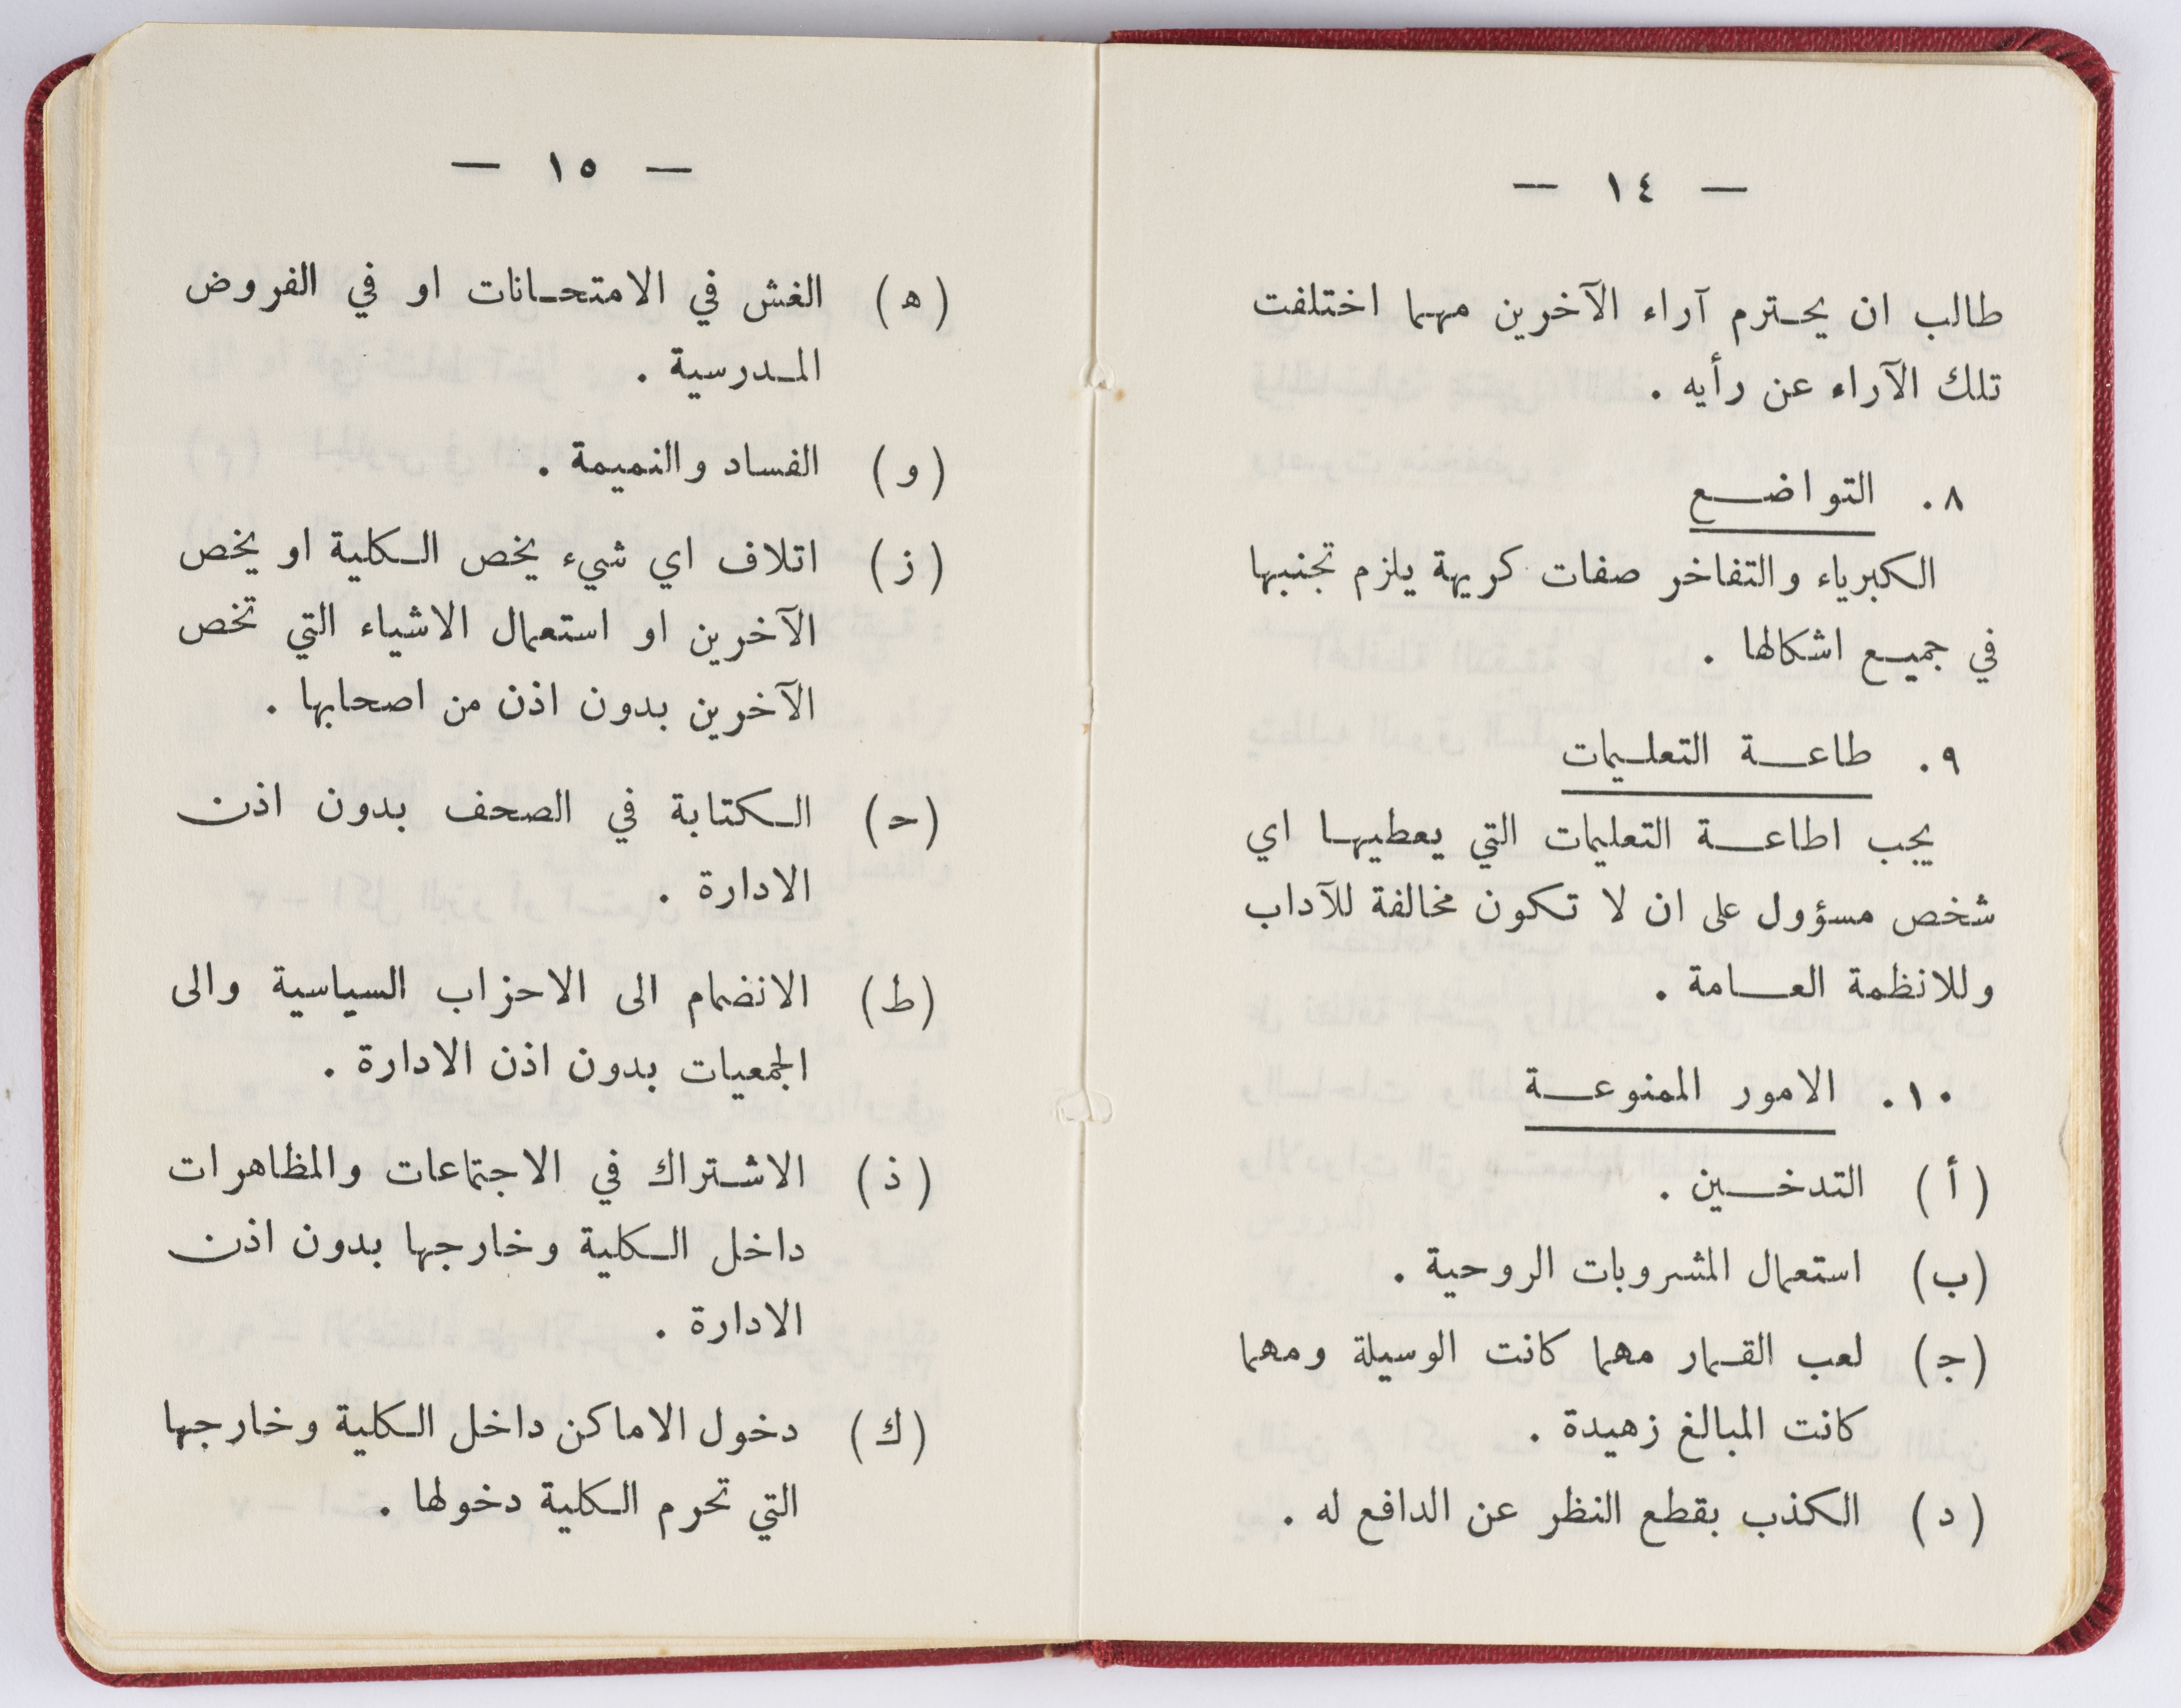 — ١٤ —
طالب ان يحترم آراء الآخرين مهما اختلفت
تلك الآراء عن رأيه .
٨. التواضع
الكبرياء والتفاخر صفات كريهة يلزم تجنبها
في جميع اشكالها .
٩. طاعة التعليمات
يجب اطاعة التعليمات التي يعطيها اي
شخص مسؤول على ان لا تكون مخالفة للآداب
وللانظمة العامة .
١٠. الامور الممنوعة
(أ) التدخين .
(ب) استعمال المشروبات الروحية .
(ج) لعب القمار مهما كانت الوسيلة ومهما
كانت المبالغ زهيدة .
(د) الكذب بقطع النظر عن الدافع له .
— ١٥ —
(ه) الغش في الامتحانات او في الفروض
المدرسية .
(و) الفساد والنميمة .
(ز) اتلاف اي شيء يخص الكلية او يخص
الآخرين او استعمال الاشياء التي تخص
الآخرين بدون اذن من اصحابها .
(ح) الكتابة في الصحف بدون اذن
الادارة .
(ط) الانضمام الى الاحزاب السياسية والى
الجمعيات بدون اذن الادارة .
(ذ) الاشتراك في الاجتماعات والمظاهرات
داخل الكلية وخارجها بدون اذن
الادارة .
(ك) دخول الاماكن داخل الكلية وخارجها
التي تحرم الكلية دخولها .